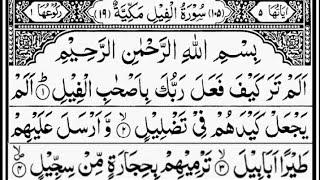 اٰیَاتُهَا ٥ (١٠٥) سُوْرَةُ الْفِيْلِ مَكِّيَّةٌ (١٩) رُكُوْعُهَا ١
بِسْمِ اللّٰهِ الرَّحْمٰنِ الرَّحِيْمِ
اَلَمْ تَرَ كَيْفَ فَعَلَ رَبُّكَ بِاَصْحٰبِ الْفِيْلِ ۱ اَلَمْ
يَجْعَلْ كَيْدَهُمْ فِيْ تَضْلِيْلٍ ۲ وَّ اَرْسَلَ عَلَيْهِمْ
طَيْرًا اَبَابِيْلَ ۳ تَرْمِيْهِمْ بِحِجَارَةٍ مِّنْ سِجِّيْلٍ ۴